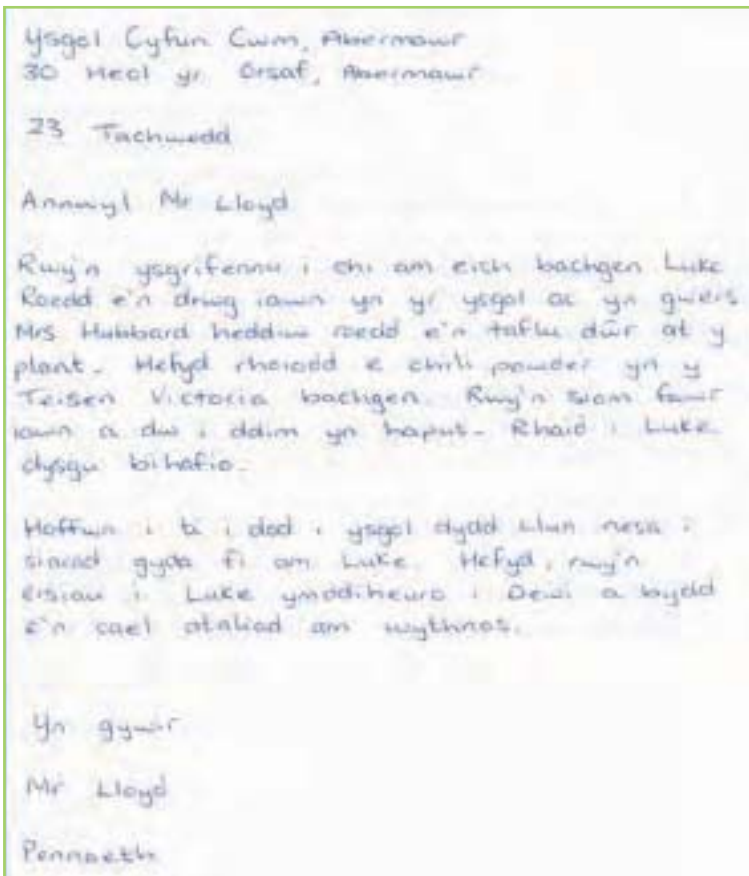 Ysgol Cyfun Cwm, Abermawr
30 Heol yr Orsaf, Abermawr
23 Tachwedd
Annwyl Mr Lloyd
Rwy'n ysgrifennu i chi am eich bachgen Luke
Roedd e'n drwg iawn yn yr ysgol ac yn gwers
Mrs Hubbard heddiw roedd e'n taflu dŵr at y
plant. Hefyd rhoiodd e chilli powder yn y
Teisen Victoria bachgen. Rwy'n siom fawr
iawn a dw i ddim yn hapus. Rhaid i Luke
dysgu bihafio.
Hoffwn i ti i dod i ysgol dydd Llun nesa i
siarad gyda fi am Luke. Hefyd, rwy'n
eisiau i Luke ymddiheuro i Dewi a bydd
e'n cael ataliad am wythnos.
Yn gywir
Mr Lloyd
Pennaeth